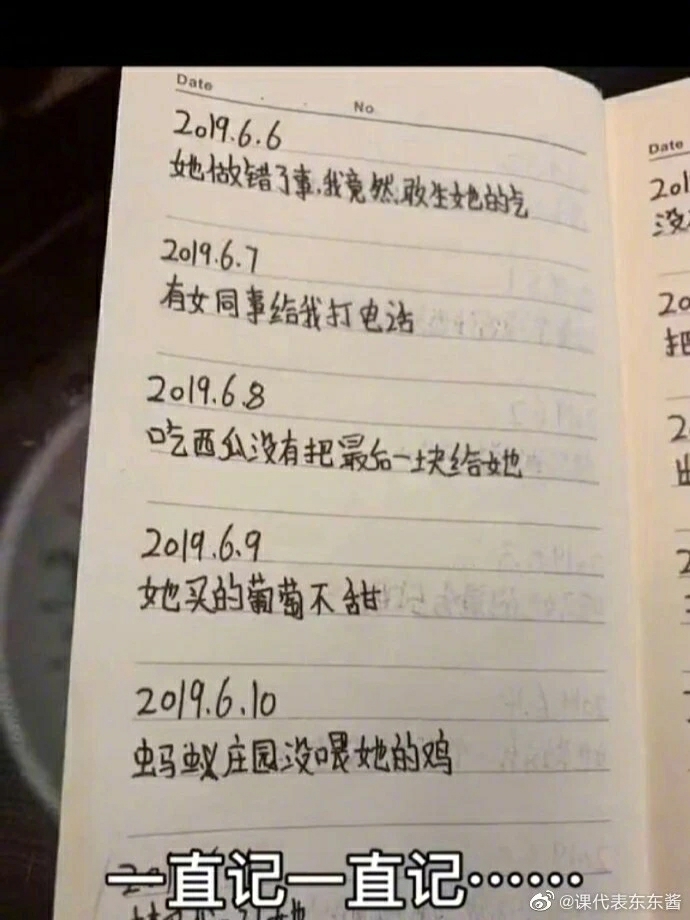 Date
No
2019.6.6
她做错了事,我竟然敢生她的气
2019.6.7
有女同事给我打电话
2019.6.8
吃西瓜没有把最后一块给她
2019.6.9
她买的葡萄不甜
2019.6.10
蚂蚁庄园没喂她的鸡
一直记一直记……
Date
201
没
20
把
2
出
@课代表东东酱